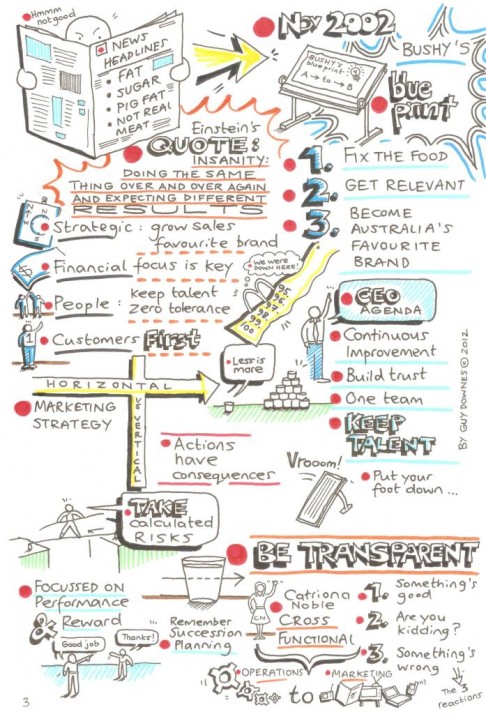 Hmmm
not good
NEWS
HEADLINES
• FAT
• SUGAR
• PIG FAT
• NOT REAL
MEAT
NOV 2002
BUSHY'S
blue print
A → to → B
BUSHY'S
blue
print
Einstein's
QUOTE:
INSANITY:
DOING THE SAME
THING OVER AND OVER AGAIN
AND EXPECTING DIFFERENT
RESULTS
1. FIX THE FOOD
2. GET RELEVANT
3. BECOME
AUSTRALIA'S
FAVOURITE
BRAND
Strategic: grow sales
favourite brand
Financial focus is key
People: keep talent
zero tolerance
Customers First
1
We were
DOWN HERE!
95
96
97
98
99
100
CEO
AGENDA
Continuous
Improvement
Build trust
One team
KEEP
TALENT
BY GUY DOWNES © 2012
Less is
more
HORIZONTAL
VS VERTICAL
MARKETING
STRATEGY
Actions
have
consequences
Vrooom!
Put your
foot down...
TAKE
calculated
RISKS
BE TRANSPARENT
FOCUSSED ON
Performance
& Reward
Good job
Thanks!
Remember
Succession
Planning
Catriona
Noble
CN
CROSS
FUNCTIONAL
OPERATIONS
MARKETING
to
1. Something's
good
2. Are you
kidding?
3. Something's
wrong
The 3
reactions
3